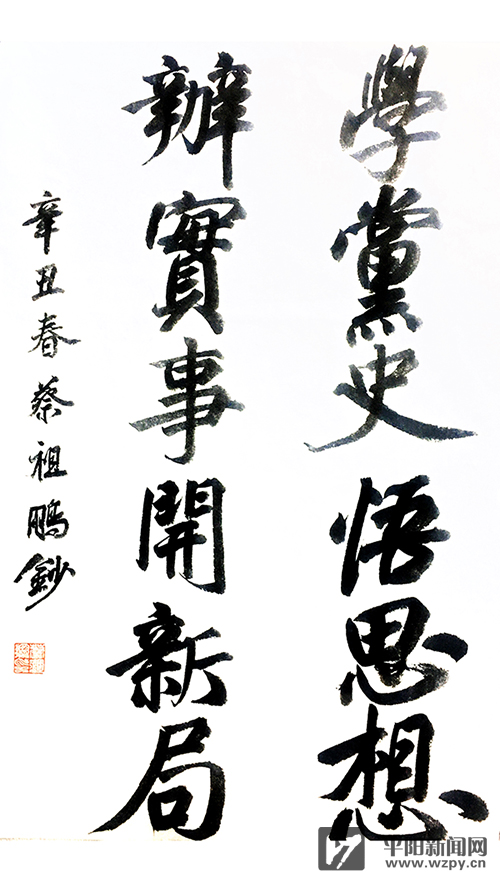 學黨史悟思想
辦實事開新局
辛丑春蔡祖鵬鈔
平阳新闻网
www.wzpy.cn